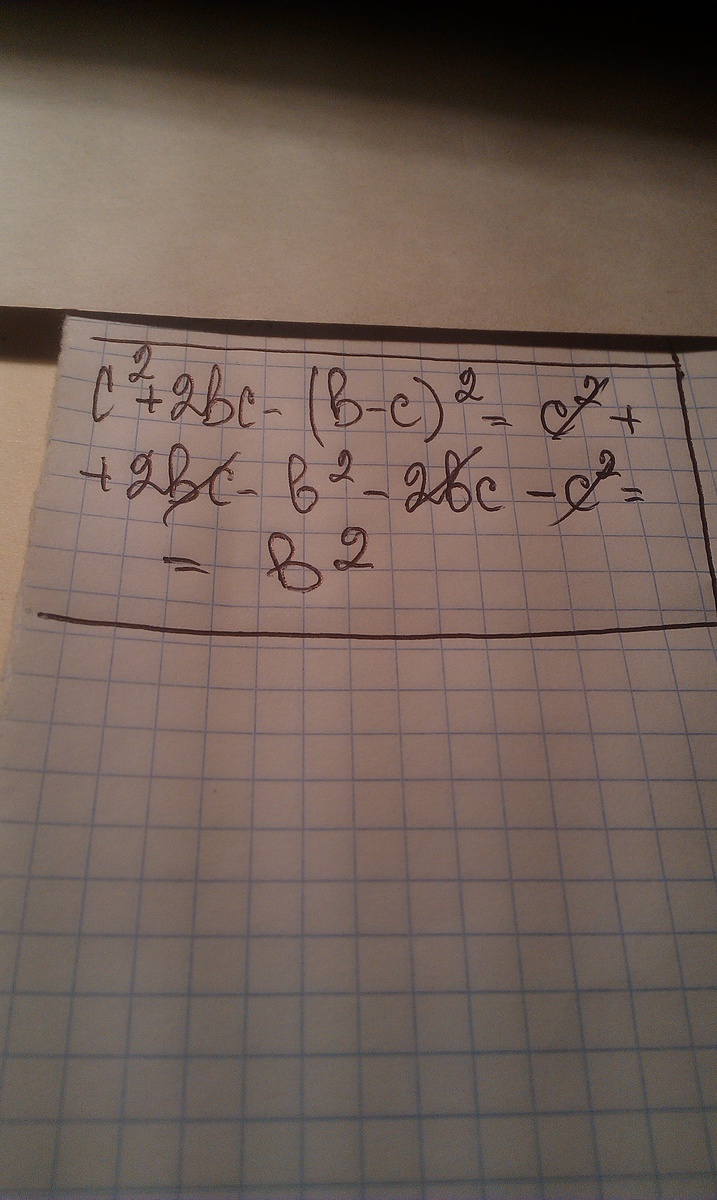 c²+2bc-(b-c)²=c²+
+2bc-b²-2bc-c²=
=b²